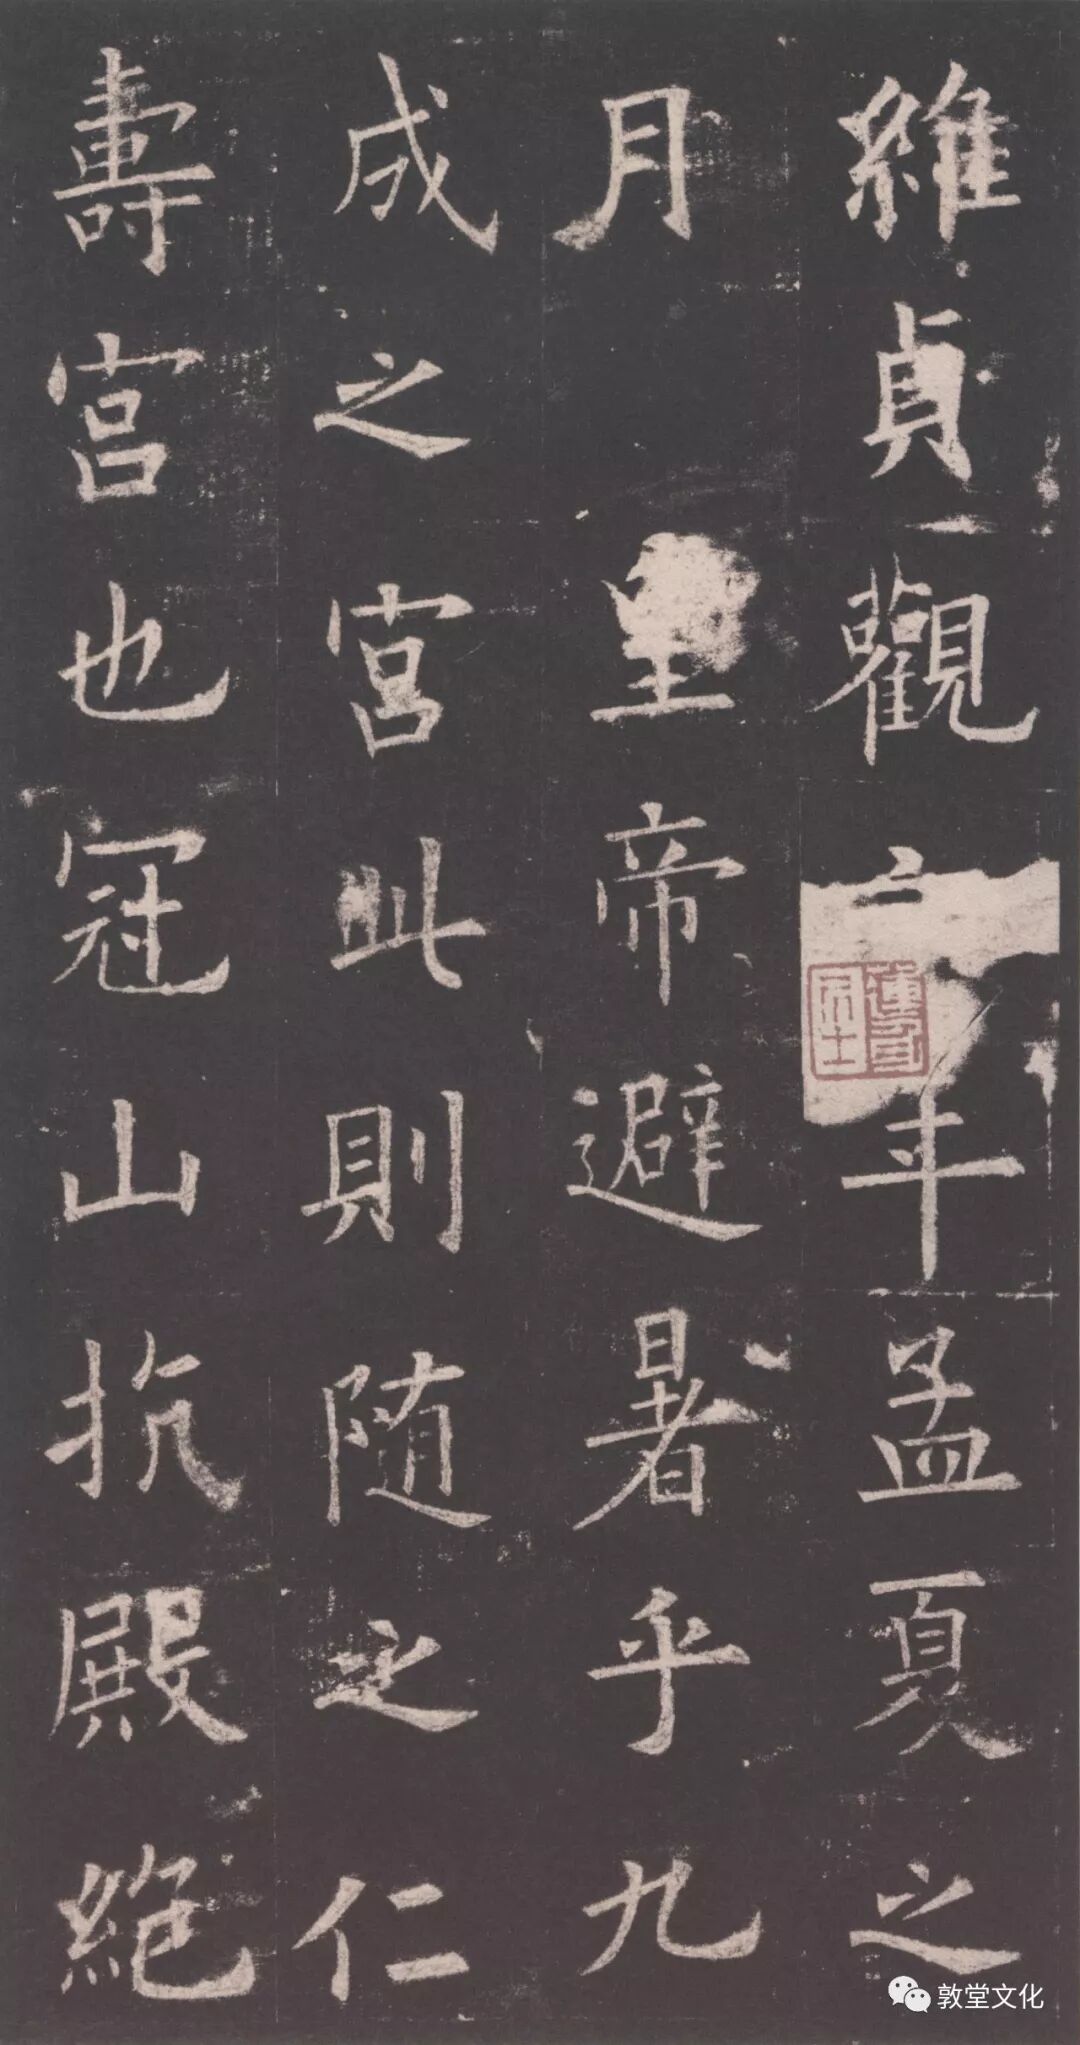 維貞觀六年孟夏之
月皇帝避暑乎九
成之宮此則隨之仁
壽宮也冠山抗殿絕
敦堂文化